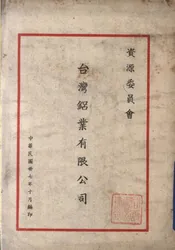 資源委員會
台灣鋁業有限公司
中華民國卅七年十月編印